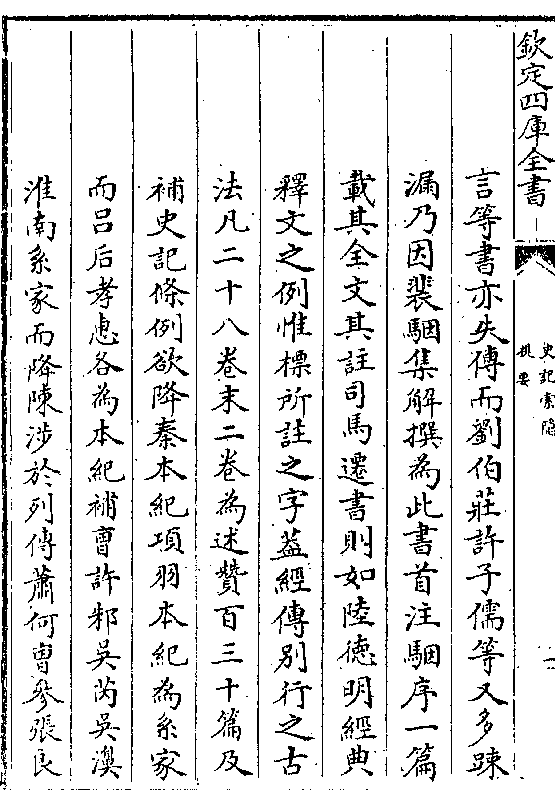 欽定四庫全書
史記索隱
提要
言等書亦失傳而劉伯莊許子儒等又多踈
漏乃因裴駰集解撰為此書首注駰序一篇
載其全文其註司馬遷書則如陸徳明經典
釋文之例惟標所註之字葢經傳别行之古
法凡二十八卷末二卷為述贊百三十篇及
補史記條例欲降秦本紀項羽本紀為系家
而吕后孝恵各為本紀補曹許邾吳芮吳濞
淮南系家而降陳涉於列傳蕭何曹參張良